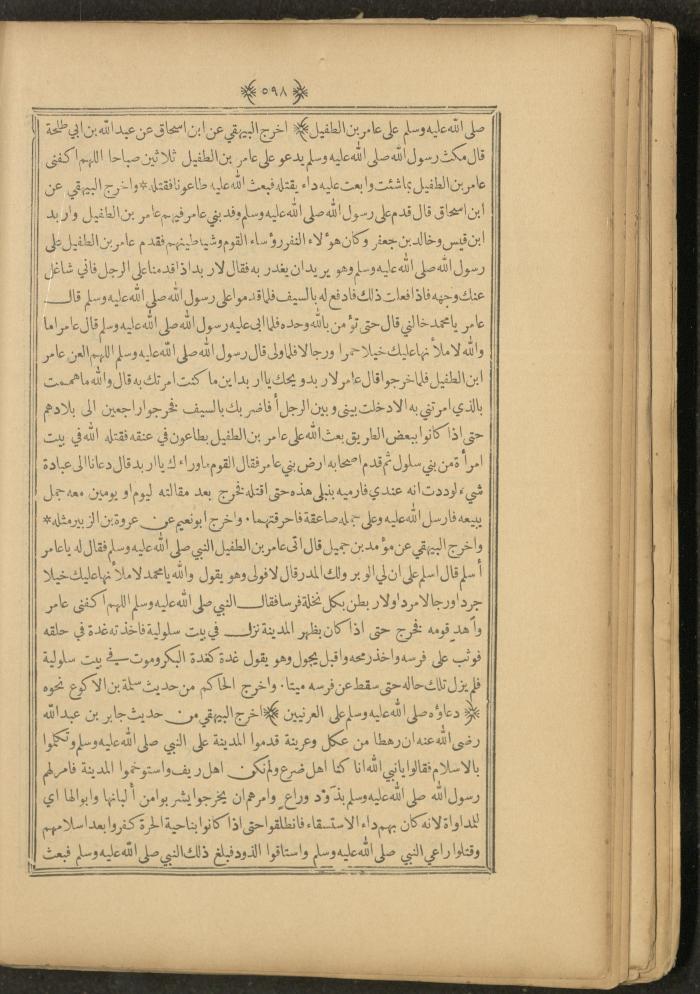 ﴿ ٥٩٨ ﴾
صلى الله عليه وسلم على عامر بن الطفيل ﴾ اخرج البيهقي عن ابن اسحاق عن عبد الله بن ابي طلحة
قال مكث رسول الله صلى الله عليه وسلم يدعو على عامر بن الطفيل ثلاثين صباحا اللهم اكفنى
عامر بن الطفيل بماشئت وابعث عليه داء يقتله فبعث الله عليه طاعونا فقتله * واخرج البيهقي عن
ابن اسحاق قال قدم على رسول الله صلى الله عليه وسلم وفد بني عامر فيهم عامر بن الطفيل واربد
ابن قيس وخالد بن جعفر وكان هؤلاء النفر رؤساء القوم وشياطينهم فقدم عامر بن الطفيل على
رسول الله صلى الله عليه وسلم وهو يريدان يغدر به فقال لاربد اذا قدمنا على الرجل فاني شاغل
عنك وجهه فاذا فعلت ذلك فادفع له بالسيف فلما قدموا على رسول الله صلى الله عليه وسلم قال
عامر يا محمد خالني قال حتى تؤمن بالله وحده فلما ابى عليه رسول الله صلى الله عليه وسلم قال عامر اما
والله لاملأنها عليك خيلا حمرا ورجالا فلما ولى قال رسول الله صلى الله عليه وسلم اللهم العن عامر
ابن الطفيل فلما خرجوا قال عامر لاربد ويحك يا اربد اين ما كنت امرتك به قال والله ما هممت
بالذي امرتني به الا دخلت بيني وبين الرجل أفاضربك بالسيف فخرجوا راجعين الى بلادهم
حتى اذا كانوا ببعض الطريق بعث الله على عامر بن الطفيل بطاعون في عنقه فقتله الله في بيت
امرأة من بني سلول ثم قدم اصحابه ارض بني عامر فقال القوم ماوراءك يا اربد قال دعانا الى عبادة
شيء لوددت انه عندي فارميه بنبلى هذه حتى اقتله فخرج بعد مقالته ليوم او يومين معه جمل
يبيعه فارسل الله عليه وعلى جمله صاعقة فاحرقتهما . واخرج ابونعيم عن عروة بن الزبير مثله *
واخرج البيهقي عن مؤمد بن جميل قال اتى عامر بن الطفيل النبي صلى الله عليه وسلم فقال له يا عامر
أسلم قال اسلم على ان لي الوبر ولك المدر قال لا فولى وهو يقول والله يا محمد لاملأنها عليك خيلا
جردا ورجالا مردا ولاربطن بكل نخلة فرسا فقال النبي صلى الله عليه وسلم اللهم اكفنى عامر
وأهد قومه فخرج حتى اذا كان بظهر المدينة نزل في بيت سلولية فاخذته غدة في حلقه
فوثب على فرسه واخذ رمحه واقبل يجول وهو يقول غدة كغدة البكر وموت في بيت سلولية
فلم يزل تلك حاله حتى سقط عن فرسه ميتا . واخرج الحاكم من حديث سلمة بن الاكوع نحوه
﴿ دعاؤه صلى الله عليه وسلم على العرنيين ﴾ اخرج البيهقي من حديث جابر بن عبد الله
رضى الله عنه ان رهطا من عكل وعرينة قدموا المدينة على النبي صلى الله عليه وسلم وتكلموا
بالاسلام فقالوا يا نبي الله انا كنا اهل ضرع ولم نكن اهل ريف واستوخموا المدينة فامر لهم
رسول الله صلى الله عليه وسلم بذود وراع وامرهم ان يخرجوا يشربوا من ألبانها وابوالها اي
للمداواة لانه كان بهم داء الاستسقاء فانطلقوا حتى اذا كانوا بناحية الحرة كفروا بعد اسلامهم
وقتلوا راعي النبي صلى الله عليه وسلم واستاقوا الذود فبلغ ذلك النبي صلى الله عليه وسلم فبعث